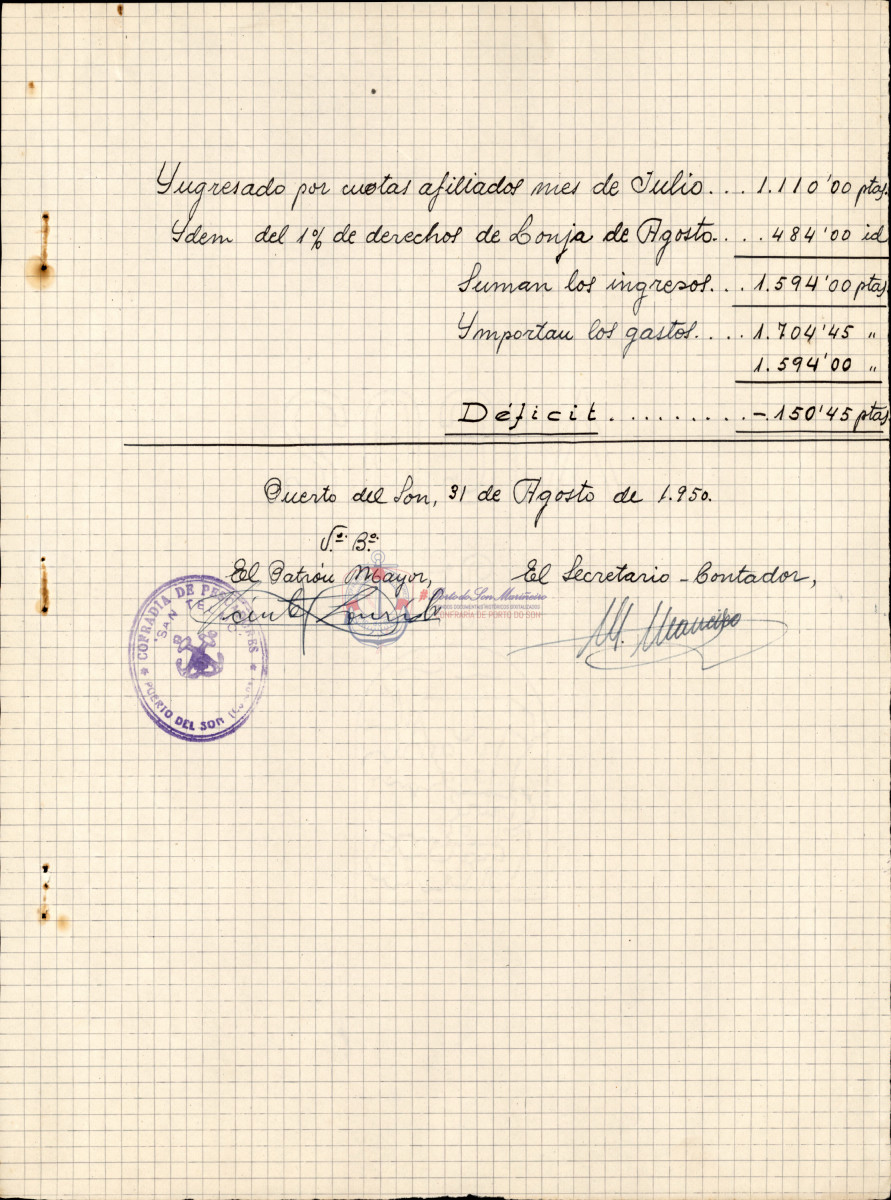 Yngresado por cuotas afiliados mes de Julio... 1.110'00 ptas.
Ydem del 1% de derechos de Lonja de Agosto.... 484'00 id
Suman los ingresos... 1.594'00 ptas.
Ymportan los gastos.... 1.704'45 "
1.594'00 "
Déficit ......... -.150'45 ptas.
Puerto del Son, 31 de Agosto de 1.950.
V.º B.º
El Patrón Mayor,
El Secretario-Contador,
COFRADIA DE PESCADORES
"SAN TELMO"
PUERTO DEL SON
Porto do Son Mariñeiro
CONFRARÍA DE PORTO DO SON